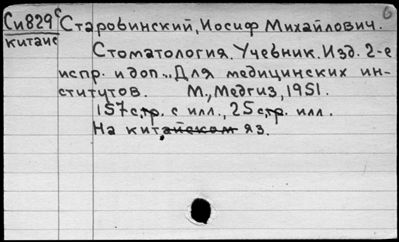 Си829 с Старовинский, Иосиф Михайлович.
китайс
Стоматология. Учебник. Изд. 2-е
испр. и доп.. Для медицинских ин-
ститутов. М., Медгиз, 1951.
157 стр. с илл., 25 стр. илл.
На китайском яз.